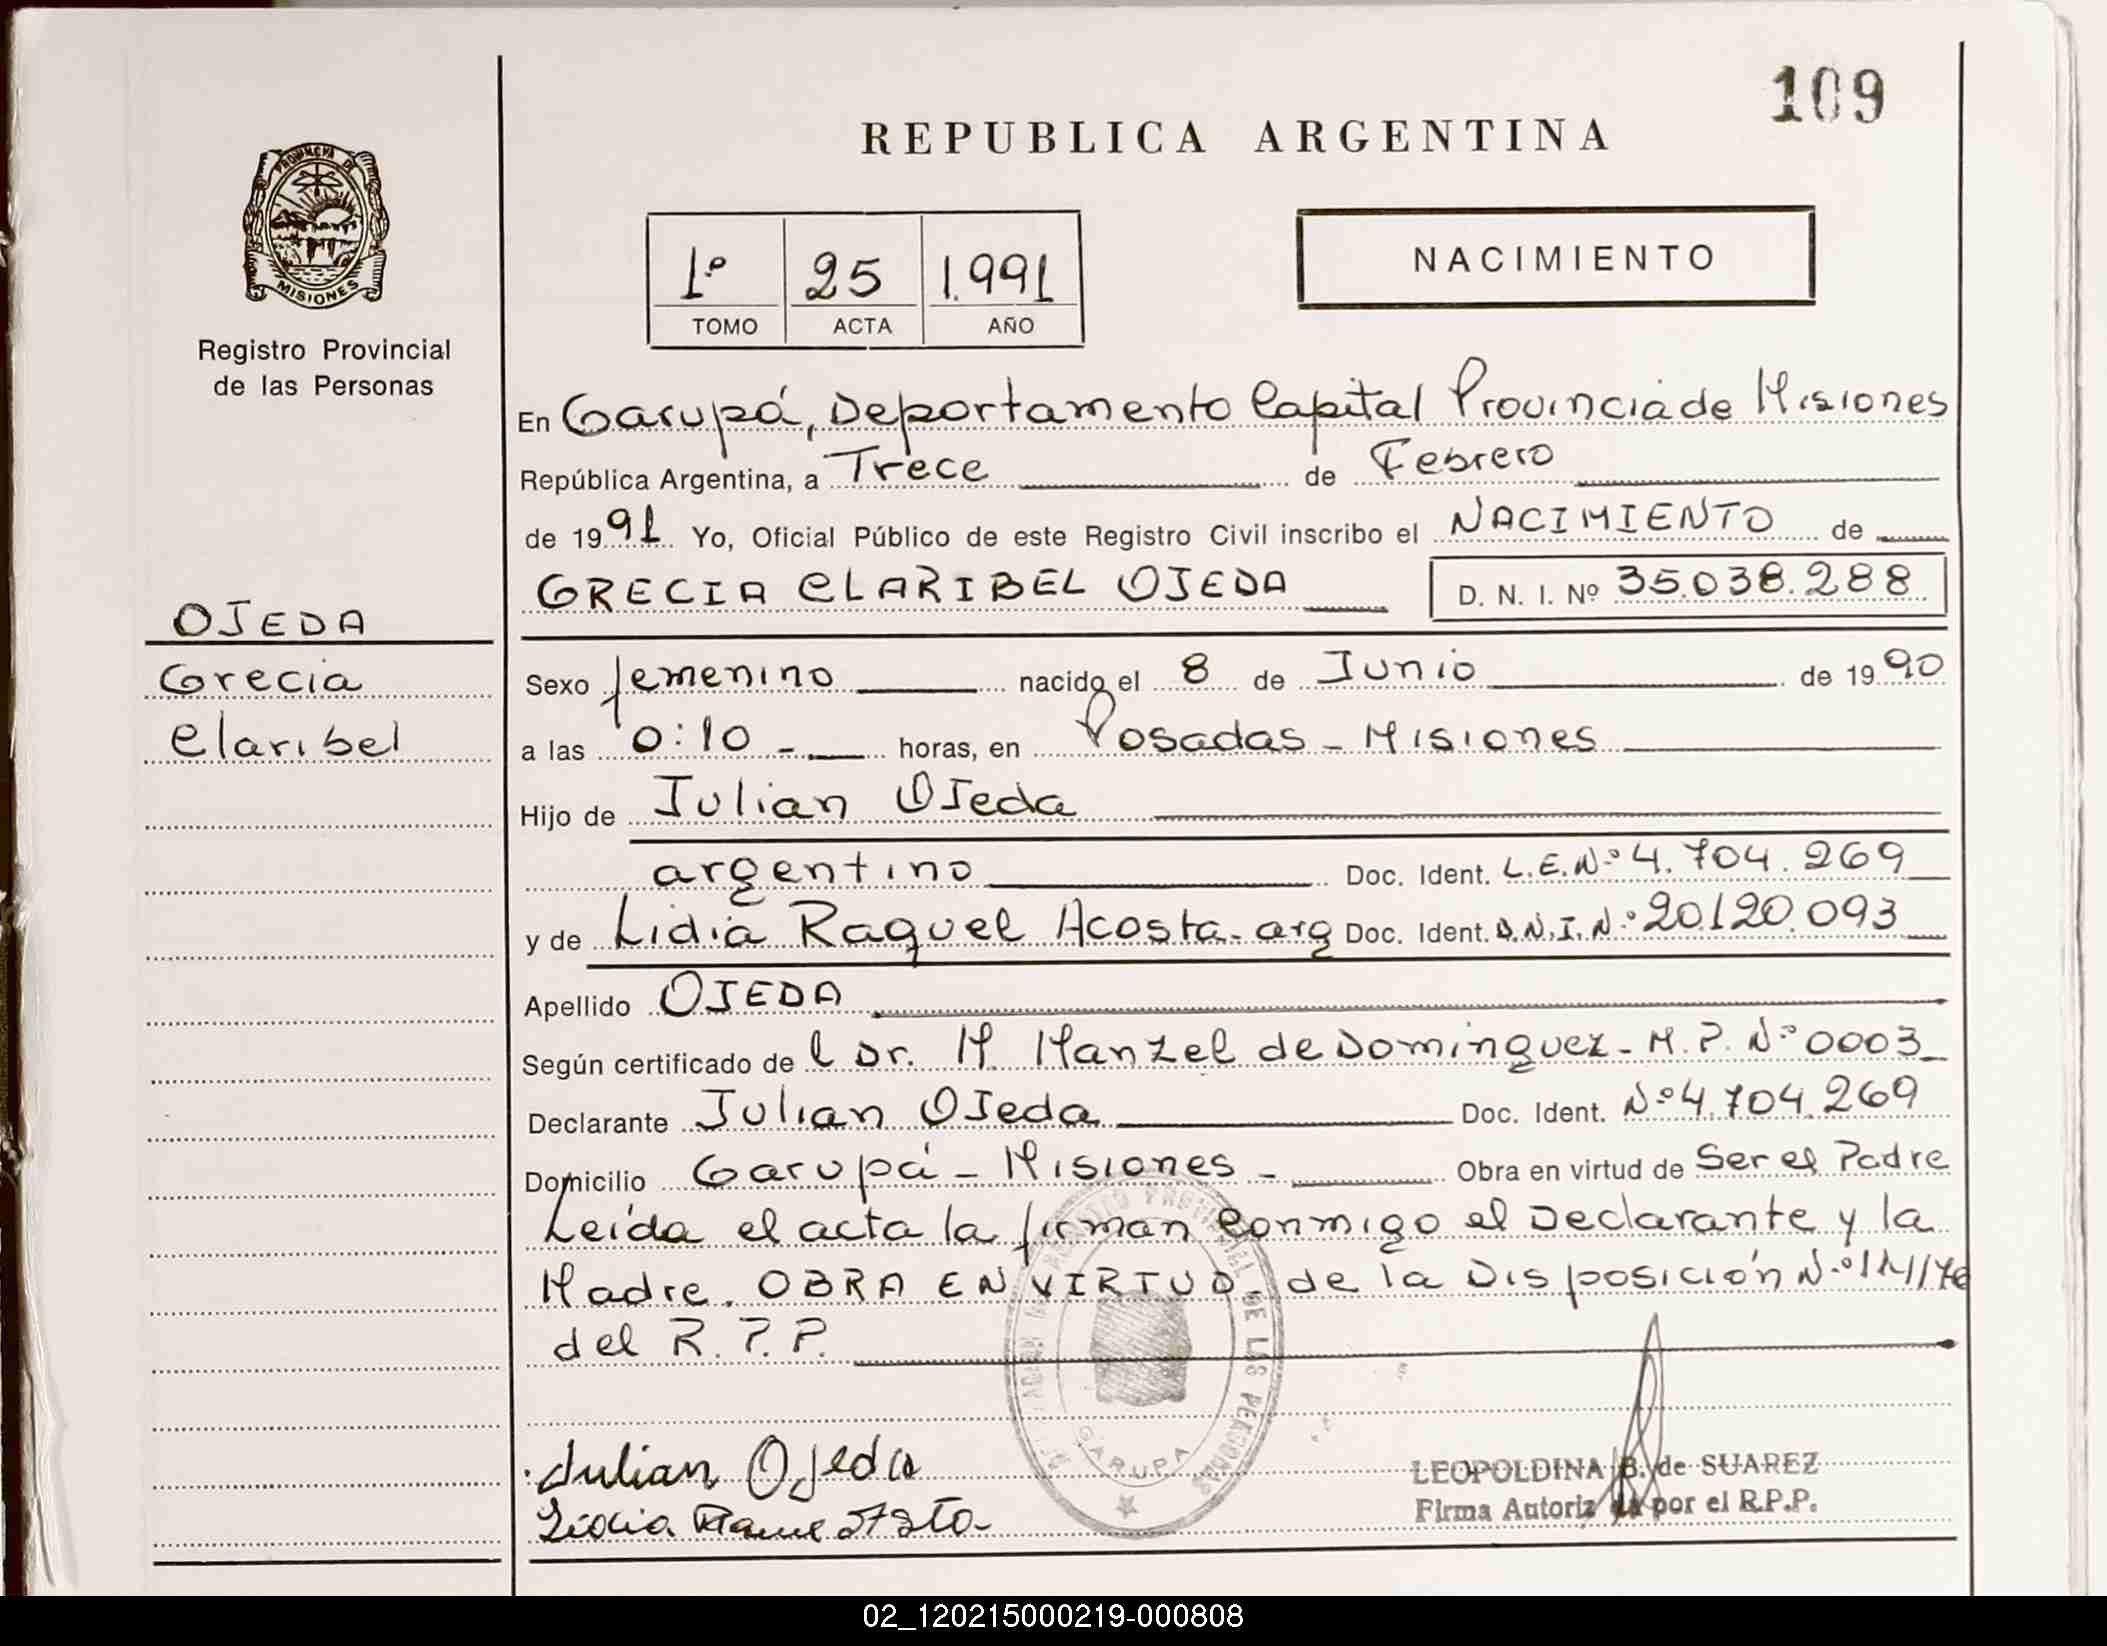 109
REPUBLICA ARGENTINA
PROVINCIA DE
MISIONES
Registro Provincial
de las Personas
1º 25 1.991
TOMO ACTA AÑO
NACIMIENTO
En Garupá, Departamento Capital Provincia de Misiones
República Argentina, a Trece de Febrero
de 1991 Yo, Oficial Público de este Registro Civil inscribo el NACIMIENTO de
GRECIA CLARIBEL OJEDA D. N. I. Nº 35.038.288
OJEDA
Grecia
Claribel
Sexo femenino nacido el 8 de Junio de 1990
a las 0:10 - horas, en Posadas - Misiones
Hijo de Julian Ojeda
argentino Doc. Ident. L.E.Nº 4.704.269
y de Lidia Raquel Acosta - arg Doc. Ident. D.N.I.Nº 20.120.093
Apellido OJEDA
Según certificado de l Dr. M. Manzel de Dominguez - M.P. Nº 0003
Declarante Julian Ojeda Doc. Ident. Nº 4.704.269
Domicilio Garupá - Misiones - Obra en virtud de Ser el Padre
Leída el acta la firman conmigo el Declarante y la
Madre. OBRA EN VIRTUD de la Disposición
del R.P.P.
REGISTRO PROVINCIAL DE LAS PERSONAS
GARUPA
Julian Ojeda
Lidia Raquel
LEOPOLDINA B. de SUAREZ
Firma Autoriz da por el R.P.P.
02_120215000219-000808